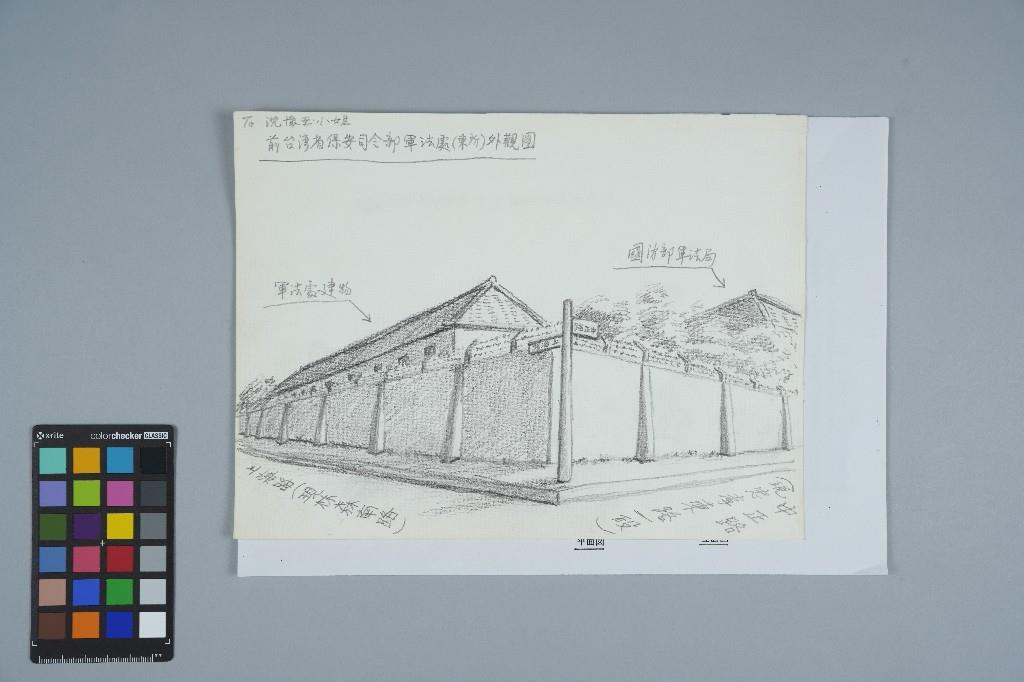 沈懷玉小姐
前台湾省保安司令部軍法處(東所)外觀圖
國防部軍法局
軍法處建物
中正路
上海路
上海路(現林森南路)
中正路(現忠孝東路一段)
平面図
x-rite
colorchecker CLASSIC